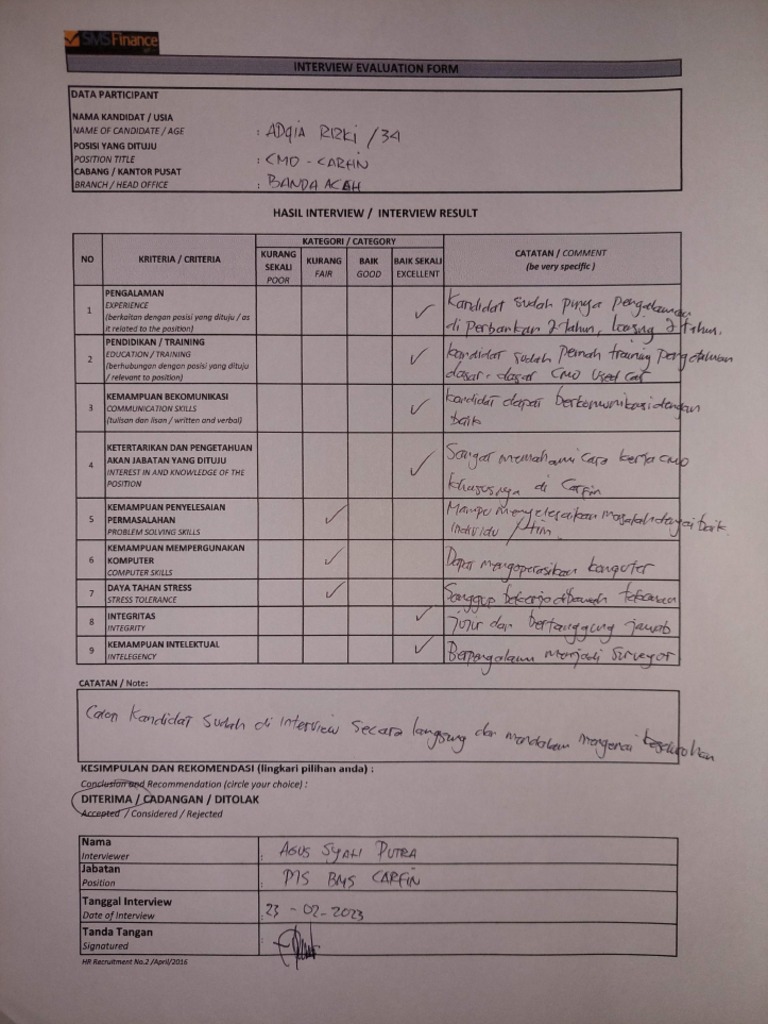 SMSFinance
INTERVIEW EVALUATION FORM
DATA PARTICIPANT
NAMA KANDIDAT / USIA
NAME OF CANDIDATE / AGE : ADQIA RIZKI / 34
POSISI YANG DITUJU
POSITION TITLE : CMO - CARFIN
CABANG / KANTOR PUSAT
BRANCH / HEAD OFFICE : BANDA ACEH
HASIL INTERVIEW / INTERVIEW RESULT
NO KRITERIA / CRITERIA KATEGORI / CATEGORY CATATAN / COMMENT
(be very specific )
KURANG SEKALI POOR KURANG FAIR BAIK GOOD BAIK SEKALI EXCELLENT
1 PENGALAMAN
EXPERIENCE
(berkaitan dengan posisi yang dituju / as
it related to the position)
✓
Kandidat sudah punya pengalaman
di perbankan 2 tahun, leasing 2 tahun.
2 PENDIDIKAN / TRAINING
EDUCATION / TRAINING
(berhubungan dengan posisi yang dituju
/ relevant to position)
✓
kandidat sudah pernah training pengetahuan
dasar-dasar CMO Used Car
3 KEMAMPUAN BEKOMUNIKASI
COMMUNICATION SKILLS
(tulisan dan lisan / written and verbal)
✓
kandidat dapat berkomunikasi dengan
baik
4 KETERTARIKAN DAN PENGETAHUAN
AKAN JABATAN YANG DITUJU
INTEREST IN AND KNOWLEDGE OF THE
POSITION
✓
Sangat memahami cara kerja CMO
khususnya di Carfin
5 KEMAMPUAN PENYELESAIAN
PERMASALAHAN
PROBLEM SOLVING SKILLS
✓
Mampu menyelesaikan masalah dengan baik
individu / tim.
6 KEMAMPUAN MEMPERGUNAKAN
KOMPUTER
COMPUTER SKILLS
✓
Dapat mengoperasikan komputer
7 DAYA TAHAN STRESS
STRESS TOLERANCE
✓
Sanggup bekerja dibawah tekanan
8 INTEGRITAS
INTEGRITY
✓
jujur dan bertanggung jawab
9 KEMAMPUAN INTELEKTUAL
INTELEGENCY
✓
Berpengalaman menjadi surveyor
CATATAN / Note:
Calon Kandidat sudah di interview secara langsung dan mengenai
KESIMPULAN DAN REKOMENDASI (lingkari pilihan anda) :
Conclusion and Recommendation (circle your choice) :
DITERIMA / CADANGAN / DITOLAK
Accepted / Considered / Rejected
Nama
Interviewer : AGUS SYAH PUTRA
Jabatan
Position : MS BMS CARFIN
Tanggal Interview
Date of Interview : 23 - 02 - 2023
Tanda Tangan
Signatured :
HR Recruitment No.2 /April/2016